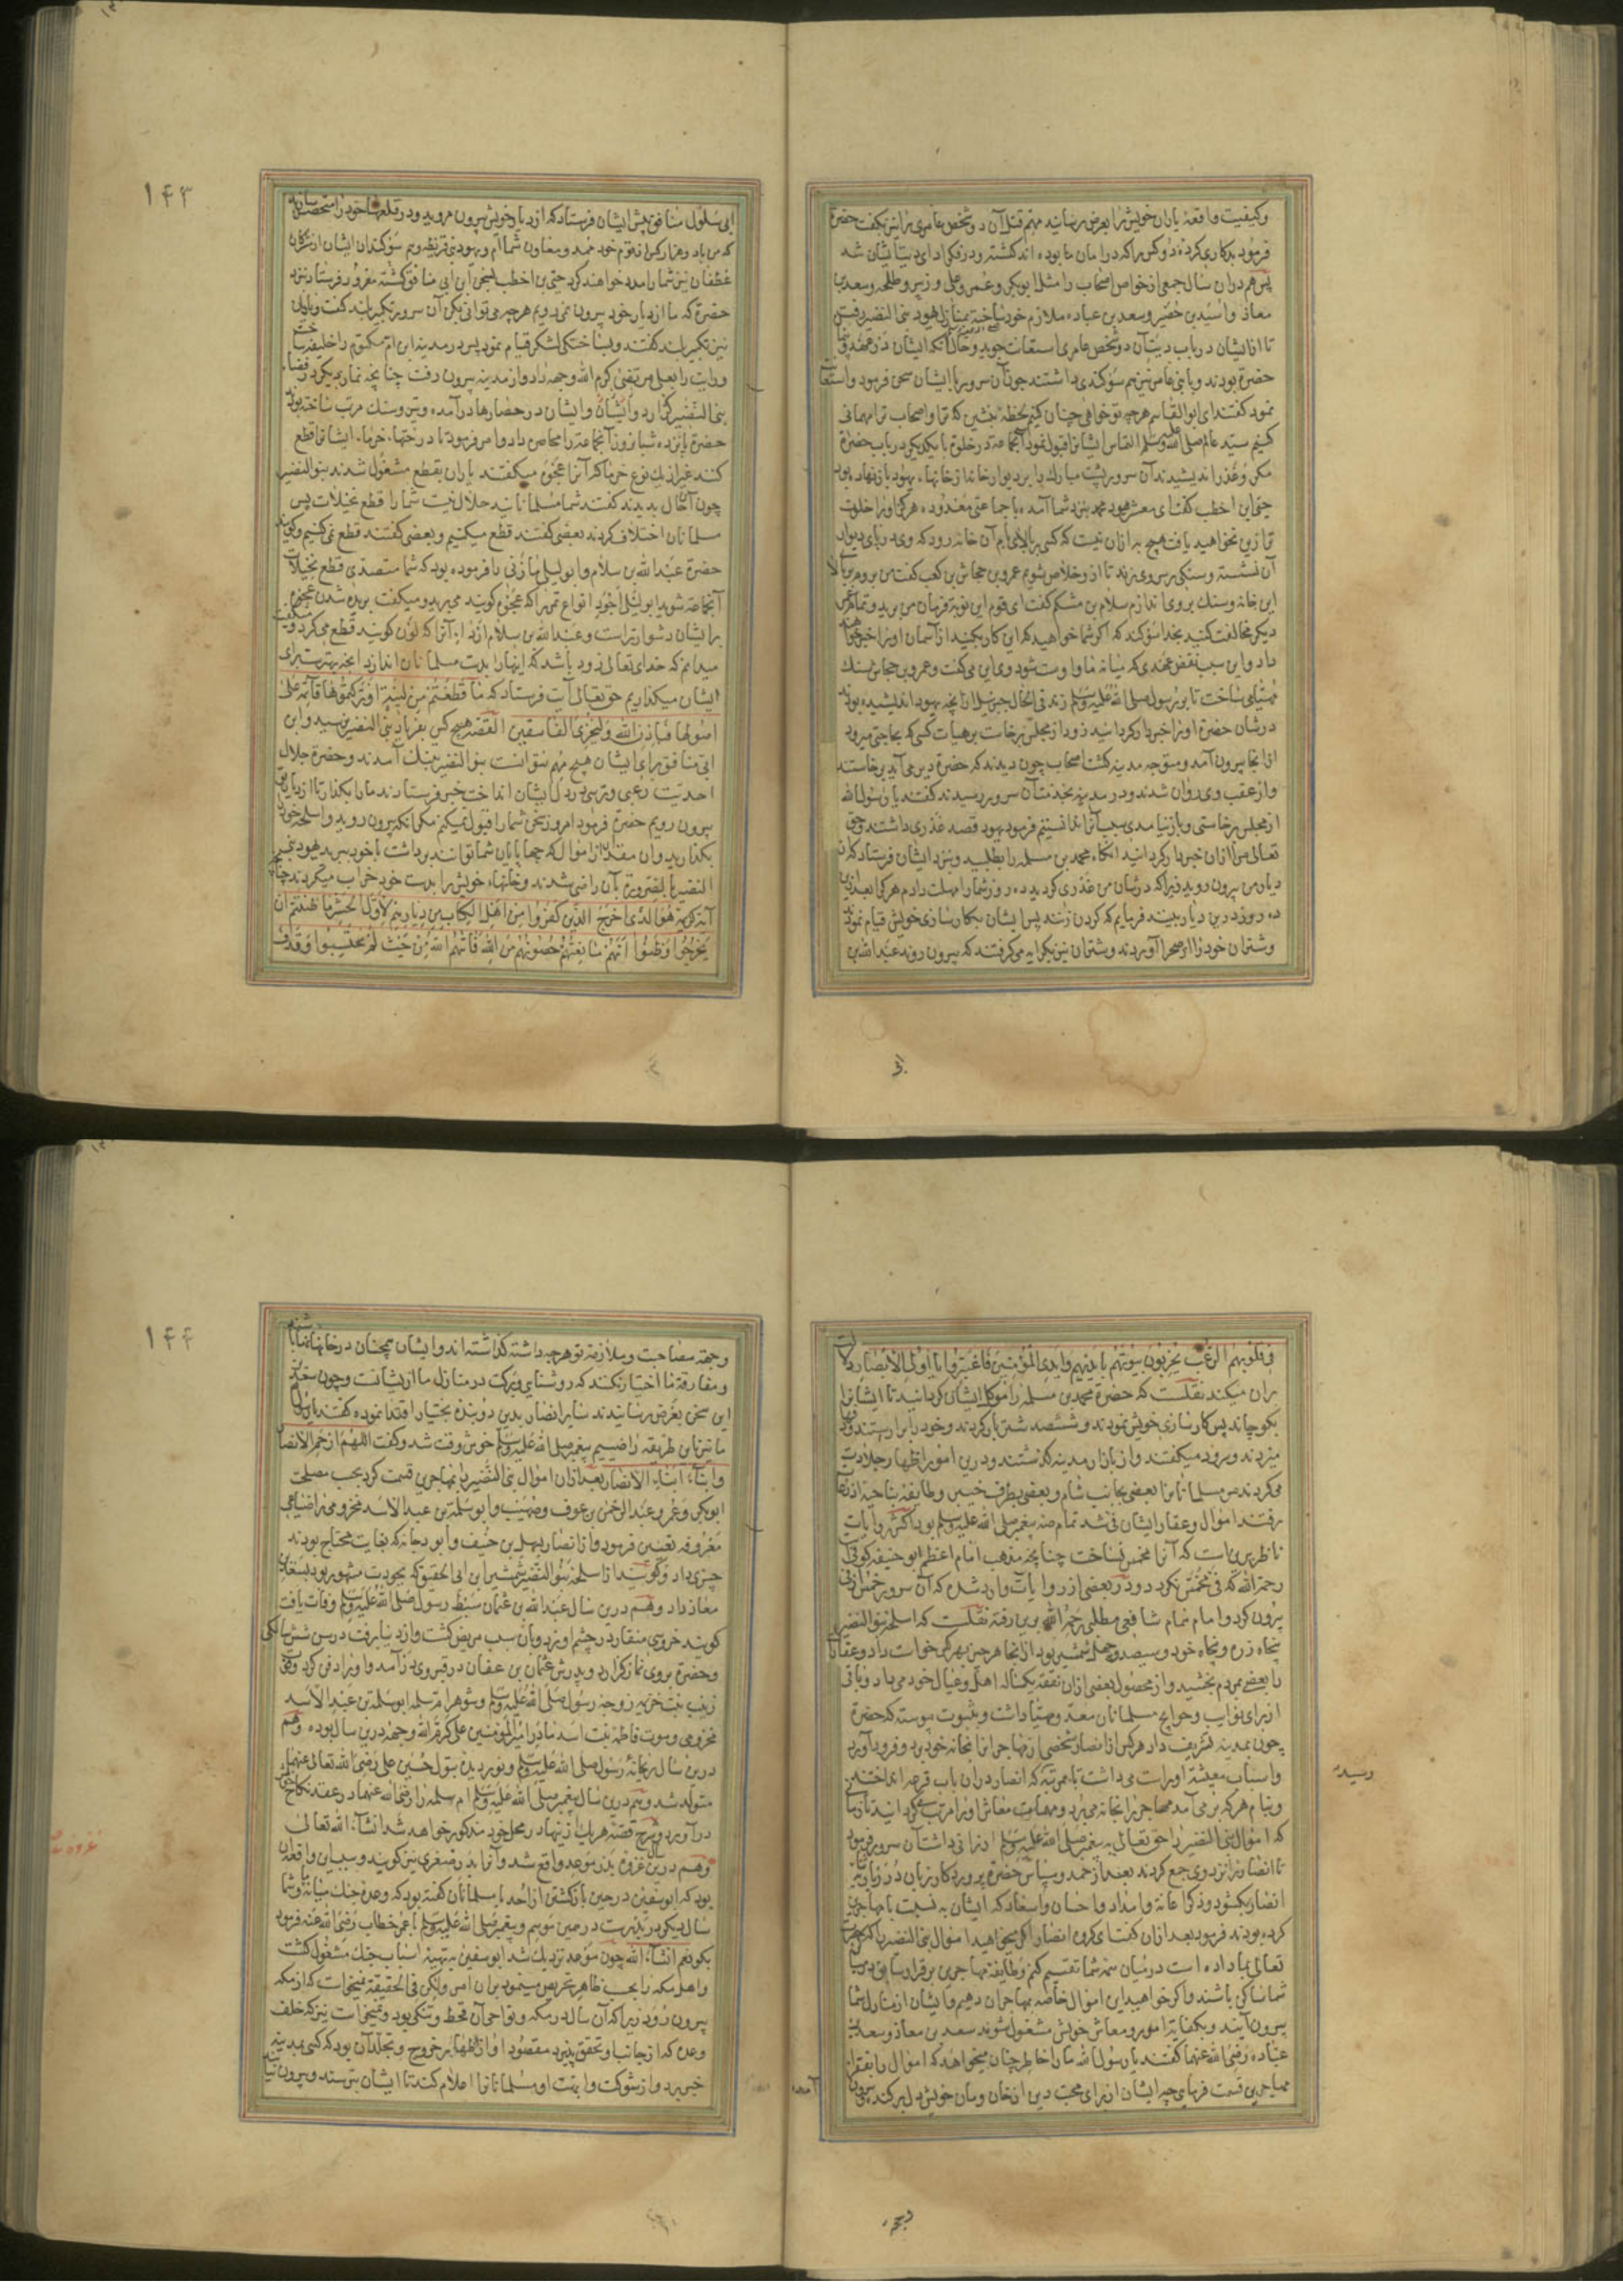 وکیفیت واقعهٔ یاران خویش را بعرض رسانید قتل آن دو شخص عامری را نیز بگفت حضرة
فرمود بد کاری کردهٔ دو کس را که در امان ما بوده اند کشتهٔ ودر فکر ادای دیت ایشان شد
پس هم دران سال جمعی از خواص اصحاب را مثل ابوبکر وعمر وعلی وزبیر وطلحه وسعد بن
معاذ واسید بن حضیر وسعد بن عباده ملازم خود ساخته بمنازل یهود بنی النضیر رفتن
تا از ایشان در باب دیت آن دو شخص عامری استعانت جوید وحال آنکه ایشان در عهد
حضرة بودند وبا بنی عامر نیز هم سوگندی داشتند چون آن سرور با ایشان سخن فرمود واستعا
نمود گفتند ای ابو القاسم هرچه تو خواهی چنان کنیم لحظهٔ بنشین که ترا واصحاب ترا مهمانی
کنیم سید عالم صلی الله علیه وسلم التماس ایشانرا قبول نمود آنجماعة در خلوة با یکدیکر در باب حضرة
مکر وغدر اندیشیدند آن سرور پشت مبارک را بر دیوار خانهٔ از خانهاء یهود باز نهاده بود
حیی ابن اخطب گفت ای معشر یهود محمد بنزد شما آمده با جماعتی معدوده هرگز او را خلوت
تر ازین نخواهید یافت هیچ به ازان نیست که کسی بر بالای بام آن خانه رود که وی در پای دیوار
آن نشسته وسنکی بر سر وی زند تا ازو خلاص شویم عمرو بن حجاش بن کعب گفت من بروم بر بالا
این خانه وسنگ بر وی اندازم سلام بن مشکم گفت ای قوم این نوبت فرمان من برید
دیگر مخالفت کنید بخدا سوگند که اگر شما خواهید که این کار بکنید از آسمان او را خبر
داد واین سبب نقض عهدی که میانهٔ ما واوست شود وی این می گفت وعمرو بن حجاش سنک
مهیا می ساخت تا بر رسول صلی الله علیه وسلم زند فی الحال جبرئیل از آنچه یهود اندیشیده بودند
در شان حضرة او را خبردار گردانید زود از مجلس برخاست بر هیات کسی که بحاجتی میرود
از انجا بیرون آمد ومتوجه مدینه گشت اصحاب چون دیدند که حضرة دیر می آید برخاستند
واز عقب وی روان شدند ودر مدینه بخدمت آن سرور رسیدند گفتند یا رسول الله
از مجلس برخاستی وباز نیامدی سبب آنرا ندانستیم فرمود یهود قصد غدری داشتند وحق
تعالی مرا ازان خبردار گردانید انکاه محمد بن مسلمه را بطلبید وبنزد ایشان فرستاد که از
دیار من بیرون روید زیرا که در شان من غدری کردید ده روز شما را مهلت دادم هر که بعد ازین
ده روز درین دیار بینند فرمایم که گردن زنند پس ایشان بکار سازی خویش قیام نموده
وشتران خود را از صحرا آوردند وشتران نیز بکرایه می گرفتند که بیرون روند عبد الله بن
۱۴۳
ابی سلول منافق پیش ایشان فرستاد که از دیار خویش بیرون مروید ودر قلعها خود را متحصن
که من با دو هزار کس از قوم خود ممد ومعاون شما ام ویهود بنی قریظه وهم سوگندان ایشان از
غطفان نیز شما را مدد خواهند کرد حیی بن اخطب بسخن ابن ابی منافق گشته مغرور فرستاد بنزد
حضرة که ما از دیار خود بیرون نمی رویم هر چه می توانی بکن آن سرور تکبیر بلند گفت ویاران
نیز تکبیر بلند گفتند وبساختگی لشکر قیام نمود پس در مدینه ابن ام مکتوم را خلیفه ساخت
ورایت را بعلی مرتضی کرم الله وجهه داد واز مدینه بیرون رفت چنانچه نماز دیگر در فضاء
بنی النضیر گزارد وایشان در حصارها در آمده وتیر وسنک مرتب ساخته بودند
حضرة پانزده شبانروز آنجماعة را محاصره داد وامر فرمود تا درختهاء خرماء ایشانرا قطع
کنند غیر از یک نوع خرما که آنرا عجوه میگفتند یاران بقطع مشغول شدند بنو النضیر
چون آن حال بدیدند گفتند شما مسلمانانید حلال نیست شما را قطع نخیلات پس
مسلمانان اختلاف کردند بعضی گفتند قطع میکنیم وبعضی گفتند قطع نمی کنیم وگویند
حضرة عبد الله بن سلام وابو لیلی مازنی را فرموده بود که شما متصدی قطع نخیلات
آنجماعة شوید ابو لیلی اجود انواع تمر را که عجوه گویند می برید ومیگفت بریده شدن عجوه
بر ایشان دشوارتر است وعبد الله بن سلام اردا آنرا که لون گویند قطع می کرد ومیگفت
میدانم که خدای تعالی زود باشد که اینها را بدست مسلمانان اندازد آنچه بهتر است برای
ایشان میگذاریم حق تعالی آیت فرستاد که ما قطعتم من لینة او ترکتموها قائمة علی
اصولها فباذن الله ولیخزی الفاسقین القصه هیچ کس بفریاد بنی النضیر نرسید وابن
ابی منافق برای ایشان هیچ مهم نتوانست بنو النضیر بتنک آمدند وحضرة جلال
احدیت رعبی وترسی در دل ایشان انداخت خبر فرستادند ما را بگذار تا از دیار
بیرون رویم حضرة فرمود امروز سخن شما را قبول نمیکنم مگر آنکه بیرون روید واسلحه خود
بگذارید وآن مقدار از اموال که چهارپایان شما توانند برداشت با خود ببرید یهود بنی
النضیر بالضرورة بآن راضی شدند وخانهاء خویش را بدست خود خراب میکردند چنانچه
آیة کریمه هو الذی اخرج الذین کفروا من اهل الکتاب من دیارهم لاول الحشر ما ظننتم ان
یخرجوا وظنوا انهم مانعتهم حصونهم من الله فاتیهم الله من حیث لم یحتسبوا وقذف
فی قلوبهم الرعب یخربون بیوتهم بایدیهم وایدی المؤمنین فاعتبروا یا اولی الابصار
بران میکند نقلست که حضرة محمد بن مسلمه را موکل ایشان گردانید تا ایشانرا
بکوچاند پس کار سازی خویش نمودند وششصد شتر بار کردند وخود را بیاراستند
میزدند وسرود میگفتند واز بازار مدینه گذشتند ودرین امور اظهار جلادت
می کردند بر مسلمانان تا بعضی بجانب شام وبعضی بطرف خیبر وطایفهٔ بناحیهٔ اذرعات
رفتند اموال وعقار ایشان فی شد تمام خاصهٔ پیغمبر صلی الله علیه وسلم بود اکثر روایات
ناظر برین است که آنرا مخمس نساخت چنانچه مذهب امام اعظم ابو حنیفه کوفی
رحمة الله که فی مخمس نکردد ودر بعضی از روایات وارد شده که آن سرور خمس ازان
بیرون کرد وامام شافعی مطلبی رحمه الله برین رفته نقلست که اسلحهٔ بنو النضیر
پنجاه زره وپنجاه خود وسیصد وچهل شمشیر بود از انجا هرچیز بهر کس خواست داد وعقار
را بعضی بمردم بخشید واز محصول بعضی ازان نفقهٔ یکسالهٔ اهل وعیال خود می داد وباقی
از برای نوایب وحوایج مسلمانان معد ومهیا داشت وبثبوت پیوسته که حضرة
چون بمدینه تشریف داد هر کس از انصار شخصی از مهاجرانرا بخانهٔ خود برد وفرود آورد
واسباب معیشة او راست می داشت تا بمرتبهٔ که انصار دران باب قرعه انداختند
وبنام هر که بر می آمد مهاجر را بخانه می برد ومهمات معاش او را مرتب می گردانید تا زمان
که اموال بنی النضیر را حق تعالی به پیغمبر صلی الله علیه وسلم ارزانی داشت آن سرور فرمود
تا انصار را نزد وی جمع کردند بعد از حمد وسپاس حضرة پروردگار زبان در
انصار بکشود وذکر اعانة وامداد واحسان واسعاد که ایشان به نسبت با مهاجرین
کرده بودند فرمود بعد ازان گفت ای گروه انصار اگر میخواهید اموال بنی النضیر را که حق
تعالی بما داده است در میان همهٔ شما تقسیم کنم وطایفهٔ مهاجرین برقرار سابق در
شما ساکن باشند واگر خواهید این اموال خاصه بمهاجران دهیم وایشان از منازل شما
بیرون آیند وبکفایة امور ومعاش خویش مشغول شوند سعد بن معاذ وسعد بن
عباده رضی الله عنهما گفتند یا رسول الله ما را خاطر چنان میخواهد که اموال را بفقراء
مهاجرین قسمت فرمایی چه ایشان از برای محبت دین از خان ومان خویش دل بر کنده
۱۴۴
وجهة مصاحبت وملازمة تو هرچه داشته گذاشته اند وایشان همچنان در خانهاء ما باشند
ومفارقة ما اختیار نکنند که روشنایی وبرکت در منازل ما از یشانست وچون سعدین
این سخن بعرض رسانیدند سایر انصار بدین دو بنده بختیار اقتدا نموده گفتند یا رسول
ما نیز باین طریقه راضییم پیغمبر صلی الله علیه وسلم خوش وقت شد وگفت اللهم ارحم الانصار
وابناء ابناء الانصار بعد ازان اموال بنی النضیر را بمهاجرین قسمت کرد بحسب مصلحت
ابوبکر وعمر وعبد الرحمن بن عوف وصهیب وابو سلمة بن عبد الاسد مخزومی را ضیاعی
معروفه تعیین فرمود واز انصار سهل بن حنیف وابو دجانه که بغایت محتاج بودند
چیزی داد وگویند از اسلحهٔ بنو النضیر شمشیر ابن ابی الحقیق که بجودت مشهور بود بسعد بن
معاذ داد وهم درین سال عبد الله بن عثمان سبط رسول صلی الله علیه وسلم وفات یافت
گویند خروسی منقار در چشم او زد وبآن سبب مریض گشت واز دنیا برفت در سن شش سالگی
وحضرة بر وی نماز گزارد وپدرش عثمان بن عفان در قبر وی در آمد واو را دفن کرد
زینب بنت خزیمه زوجهٔ رسول صلی الله علیه وسلم وشوهر ام سلمه ابو سلمة بن عبد الاسد
مخزومی وموت فاطمه بنت اسد مادر امیر المؤمنین علی کرم الله وجهه درین سال بوده وهم
درین سال ریحانهٔ رسول صلی الله علیه وسلم ونور دیدهٔ بتول حسین علی رضی الله تعالی عنهما
متولد شد وهم درین سال پیغمبر صلی الله علیه وسلم ام سلمه را رضی الله عنها در عقد نکاح
در آورد وشرح قصهٔ هر یک ازینها در محل خود مذکور خواهد شد انشاء الله تعالی
وهم درین سال غزوهٔ بدر موعد واقع شد وآنرا بدر صغری نیز گویند وسبب این واقعه آن
بود که ابو سفین در حین بازگشتن از احد با مسلمانان گفته بود که وعدهٔ جنک میانهٔ ما وشما
سال دیگر در بدرست در همین موسم وپیغمبر صلی الله علیه وسلم با عمر خطاب رضی الله عنه فرمود
بگو نعم انشاء الله چون موعد نزدیک شد ابو سفین بتهیهٔ اسباب جنک مشغول گشت
واهل مکه را بحسب ظاهر تحریص مینمود بران امر ولیکن فی الحقیقة نمیخواست که از مکه
بیرون رود زیرا که آن سال در مکه ونواحی آن قحط وتنگی بود ونمیخواست نیز که خلف
وعده که از جانب او تحقق پذیرد مقصود او از اظهار خروج وتجلد آن بود که کسی بمدینه
خبر برد واز شوکت وابهت او مسلمانانرا اعلام کند تا ایشان بترسند وبیرون نیایند